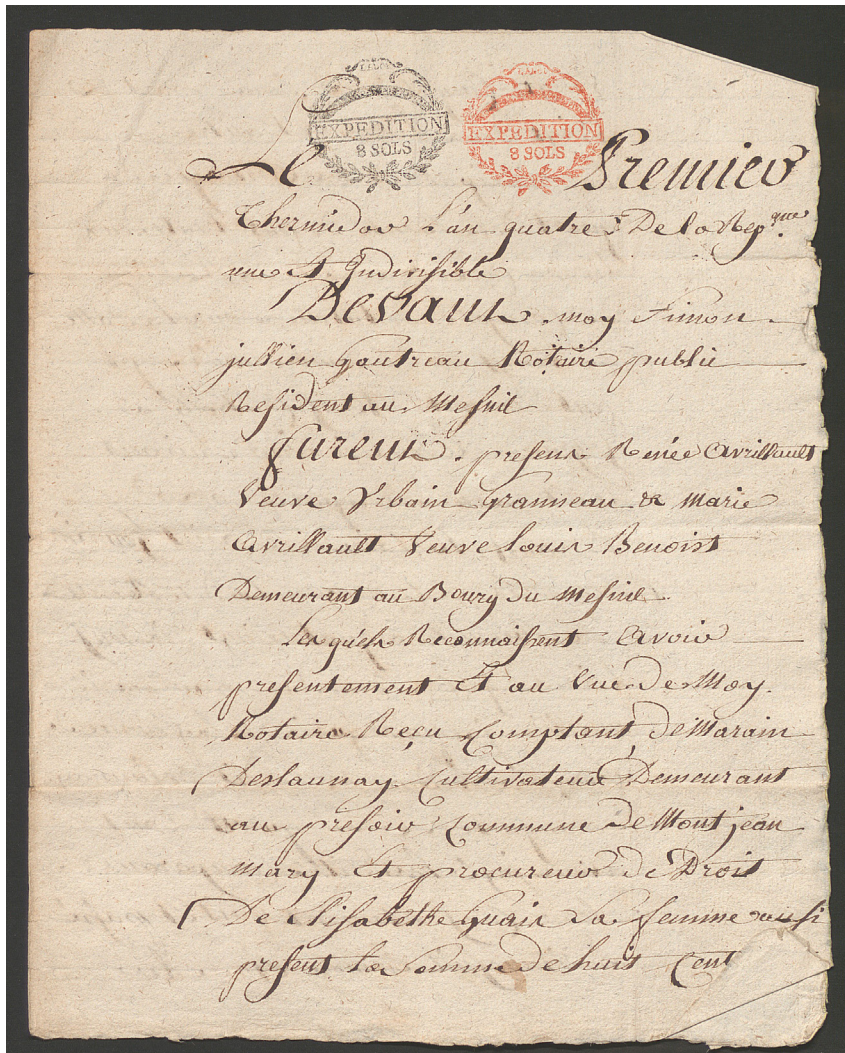 EXPEDITION
8 SOLS
EXPEDITION
8 SOLS
Le Premier
Thermidor L'an quatre e De la Rep.que
une Et Indivisible
Devant moy Simon
jullien Gautreau Notaire public
Resident au Mesnil
fureut presens Renée Avrillault
Veuve Urbain Granneau & marie
Avrillault Veuve Louis Benoist
Demeurant au Bourg du Mesnil
Lesquels Reconnaissent Avoir
presentement Et au Vue de Moy
Notaire Reçu Comptant de Marain
Deslaunay Cultivateur Demeurant
au presoir Commune de Montjean
mary Et procureur de Droit
De Elisabethe Guais Sa femme aussi
present La Somme de huit Cent